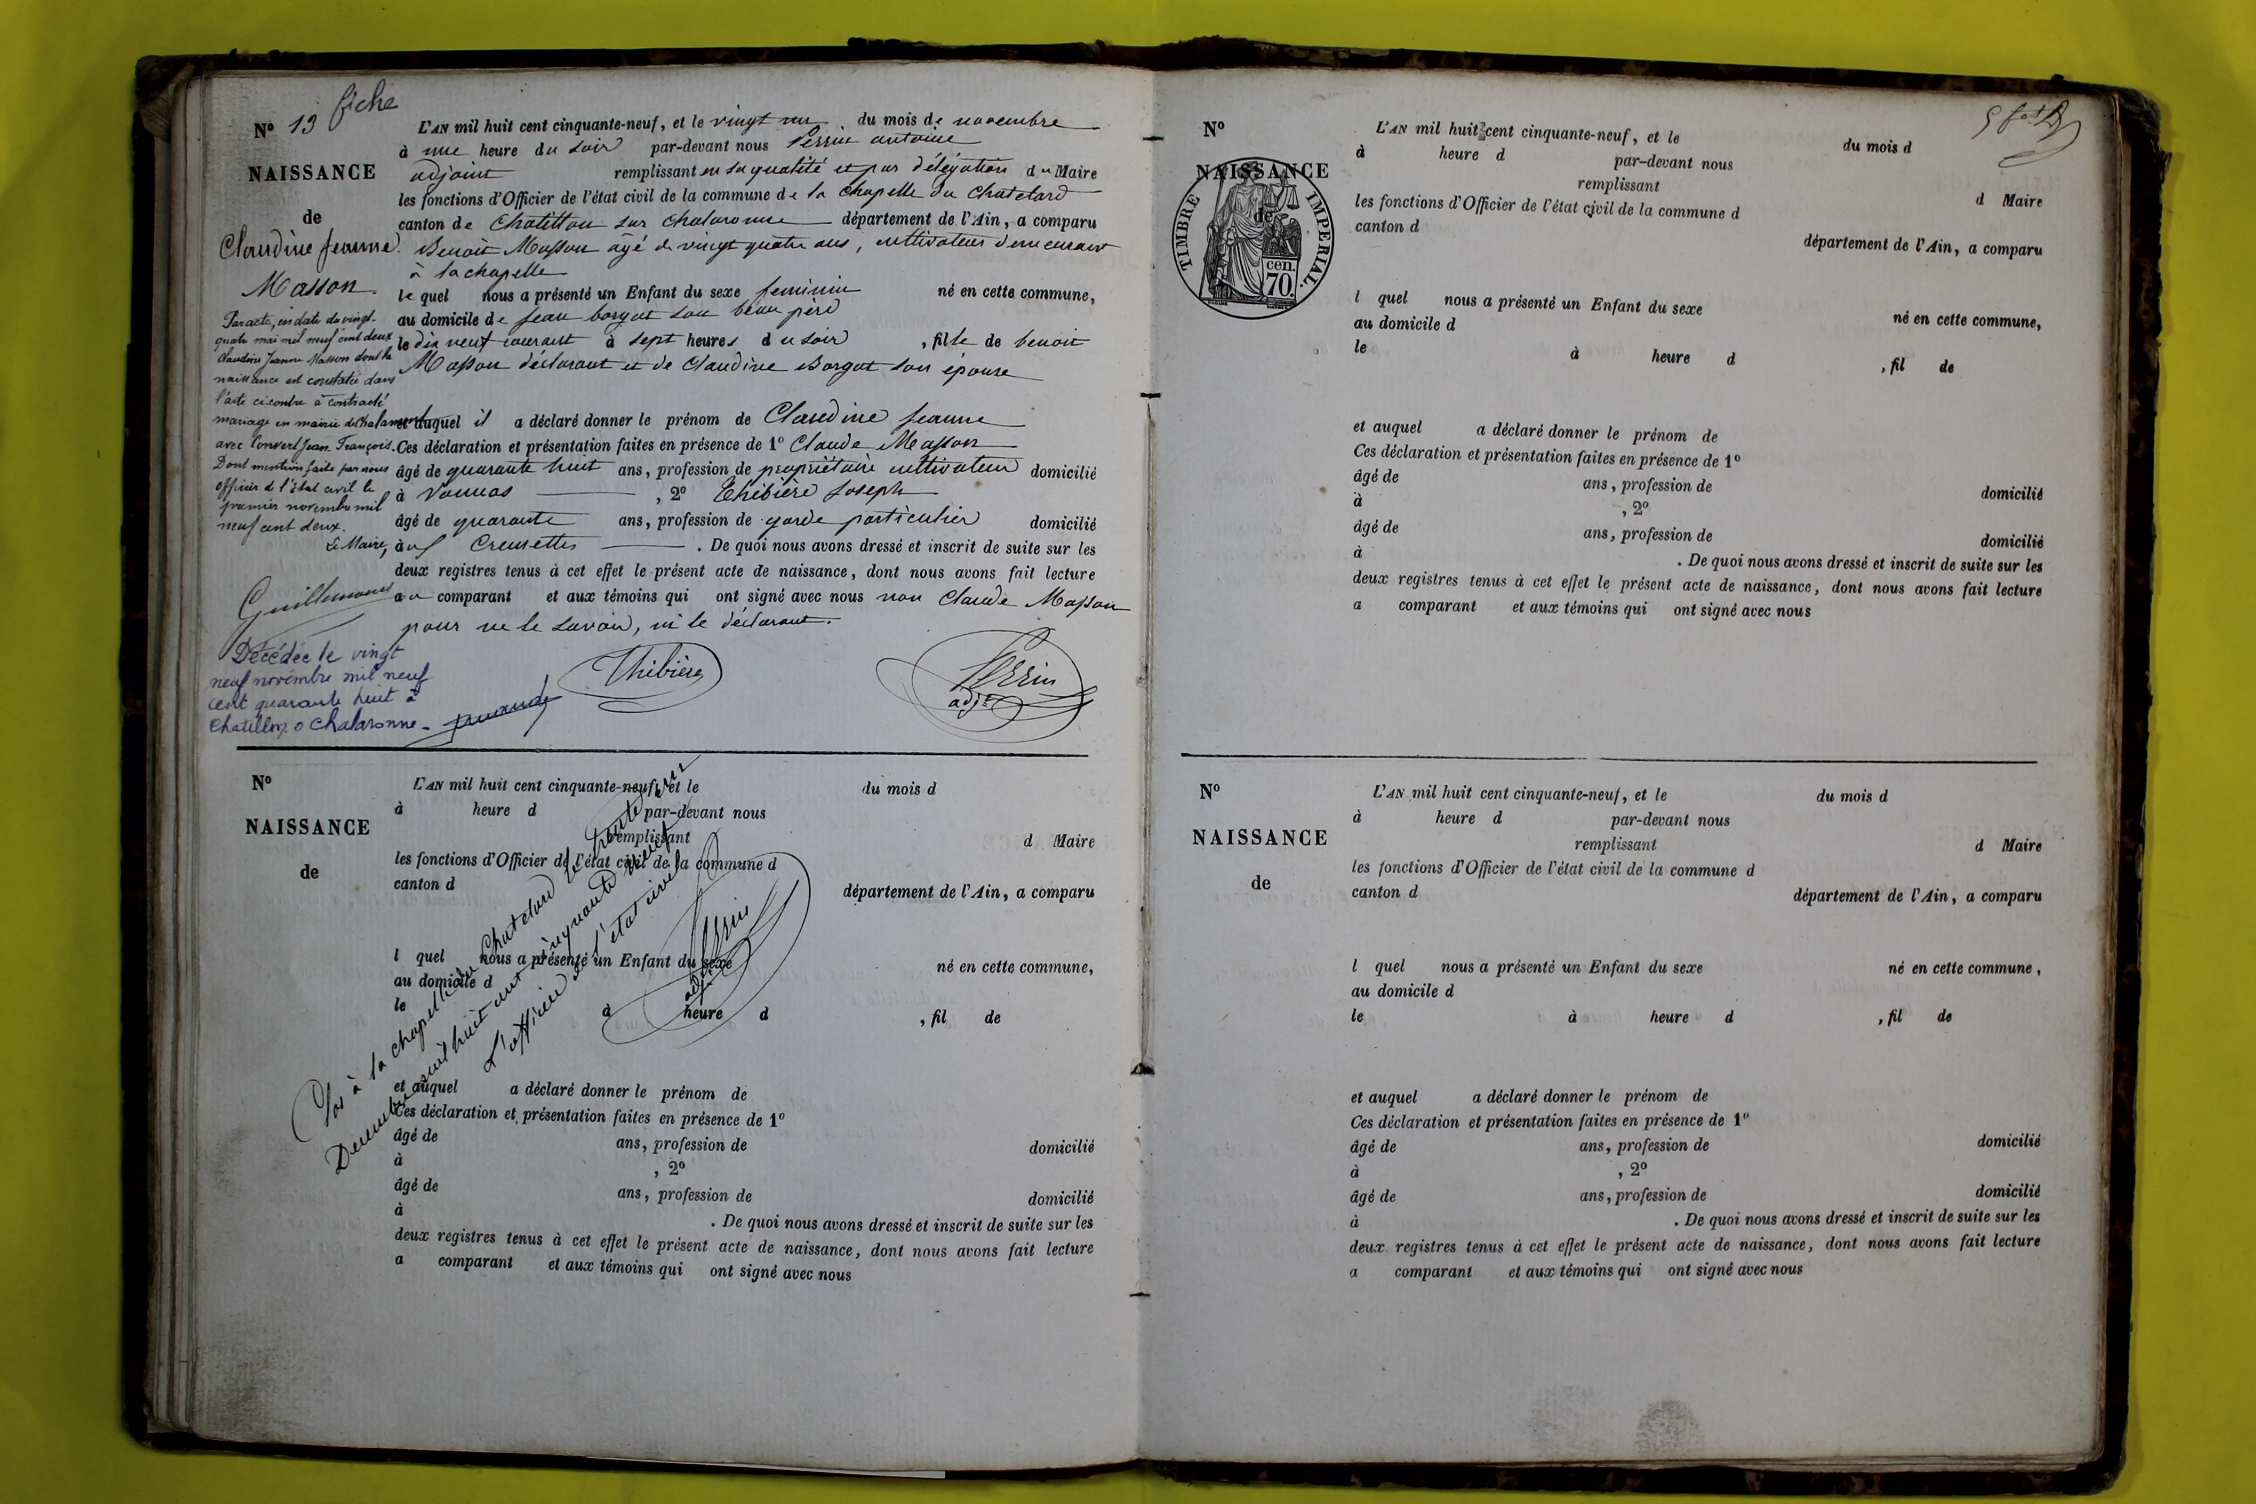 fiche
N° 13
NAISSANCE
de
Claudine Jeanne
Masson.
L'AN mil huit cent cinquante-neuf, et le vingt un du mois de novembre
à une heure du soir par-devant nous Perrin antoine
adjoint remplissant en sa qualité et par délégation du Maire
les fonctions d'Officier de l'état civil de la commune de la chapelle du Chatelard
canton de Chatillon sur chalaronne département de l'Ain, a comparu
Benoit Masson âgé de vingt quatre ans, cultivateur demeurant
à la chapelle
le quel nous a présenté un Enfant du sexe feminin né en cette commune,
au domicile de jean borgat son beau père
le dix neuf courant à sept heures du soir, fille de benoit
Masson déclarant et de Claudine Borgat son épouse
et auquel il a déclaré donner le prénom de Claudine jeanne
Ces déclaration et présentation faites en présence de 1° Claude Masson
âgé de quarante huit ans, profession de propriétaire cultivateur domicilié
à Vonnas, 2° Thibière Joseph
âgé de quarante ans, profession de garde particulier domicilié
Creusettes. De quoi nous avons dressé et inscrit de suite sur les
deux registres tenus à cet effet le présent acte de naissance, dont nous avons fait lecture
au comparant et aux témoins qui ont signé avec nous non Claude Masson
pour ne le savoir, ni le déclarant.
Thibière
Perrin
adjt
Par acte, en date du vingt-
quatre mai mil neuf cent deux
Claudine Jeanne Masson dont la
naissance est constatée dans
l'acte ci contre à contracté
mariage en mairie de
avec Convert Jean François.
Dont mention faite par nous
officier de l'état civil le
premier novembre mil
neuf cent deux.
Le Maire,
Décédée le vingt
neuf novembre mil neuf
cent quarante huit à
Chatillon s Chalaronne -
N°
NAISSANCE
de
L'AN mil huit cent cinquante-neuf, et le du mois d
à heure d par-devant nous
remplissant d Maire
les fonctions d'Officier de l'état civil de la commune d
canton d département de l'Ain, a comparu
l quel nous a présenté un Enfant du sexe né en cette commune,
au domicile d
le à heure d , fil de
et auquel a déclaré donner le prénom de
Ces déclaration et présentation faites en présence de 1°
âgé de ans, profession de domicilié
à , 2°
âgé de ans, profession de domicilié
à . De quoi nous avons dressé et inscrit de suite sur les
deux registres tenus à cet effet le présent acte de naissance, dont nous avons fait lecture
a comparant et aux témoins qui ont signé avec nous
Clos à la chapelle du Chatelard le trente un
Decembre mil huit cent cinquante neuf
L'officier de l'état civil
Perrin
adjt
N°
NAISSANCE
de
TIMBRE IMPERIAL.
cen.
70.
L'AN mil huit cent cinquante-neuf, et le du mois d
à heure d par-devant nous
remplissant d Maire
les fonctions d'Officier de l'état civil de la commune d
canton d département de l'Ain, a comparu
l quel nous a présenté un Enfant du sexe né en cette commune,
au domicile d
le à heure d , fil de
et auquel a déclaré donner le prénom de
Ces déclaration et présentation faites en présence de 1°
âgé de ans, profession de domicilié
à , 2°
âgé de ans, profession de domicilié
à . De quoi nous avons dressé et inscrit de suite sur les
deux registres tenus à cet effet le présent acte de naissance, dont nous avons fait lecture
a comparant et aux témoins qui ont signé avec nous
N°
NAISSANCE
de
L'AN mil huit cent cinquante-neuf, et le du mois d
à heure d par-devant nous
remplissant d Maire
les fonctions d'Officier de l'état civil de la commune d
canton d département de l'Ain, a comparu
l quel nous a présenté un Enfant du sexe né en cette commune,
au domicile d
le à heure d , fil de
et auquel a déclaré donner le prénom de
Ces déclaration et présentation faites en présence de 1°
âgé de ans, profession de domicilié
à , 2°
âgé de ans, profession de domicilié
à . De quoi nous avons dressé et inscrit de suite sur les
deux registres tenus à cet effet le présent acte de naissance, dont nous avons fait lecture
a comparant et aux témoins qui ont signé avec nous